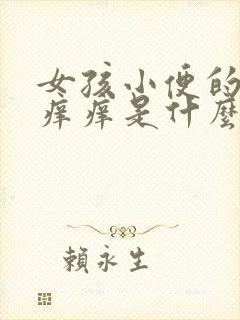 女孩小便的
痒痒是什麼
賴永生